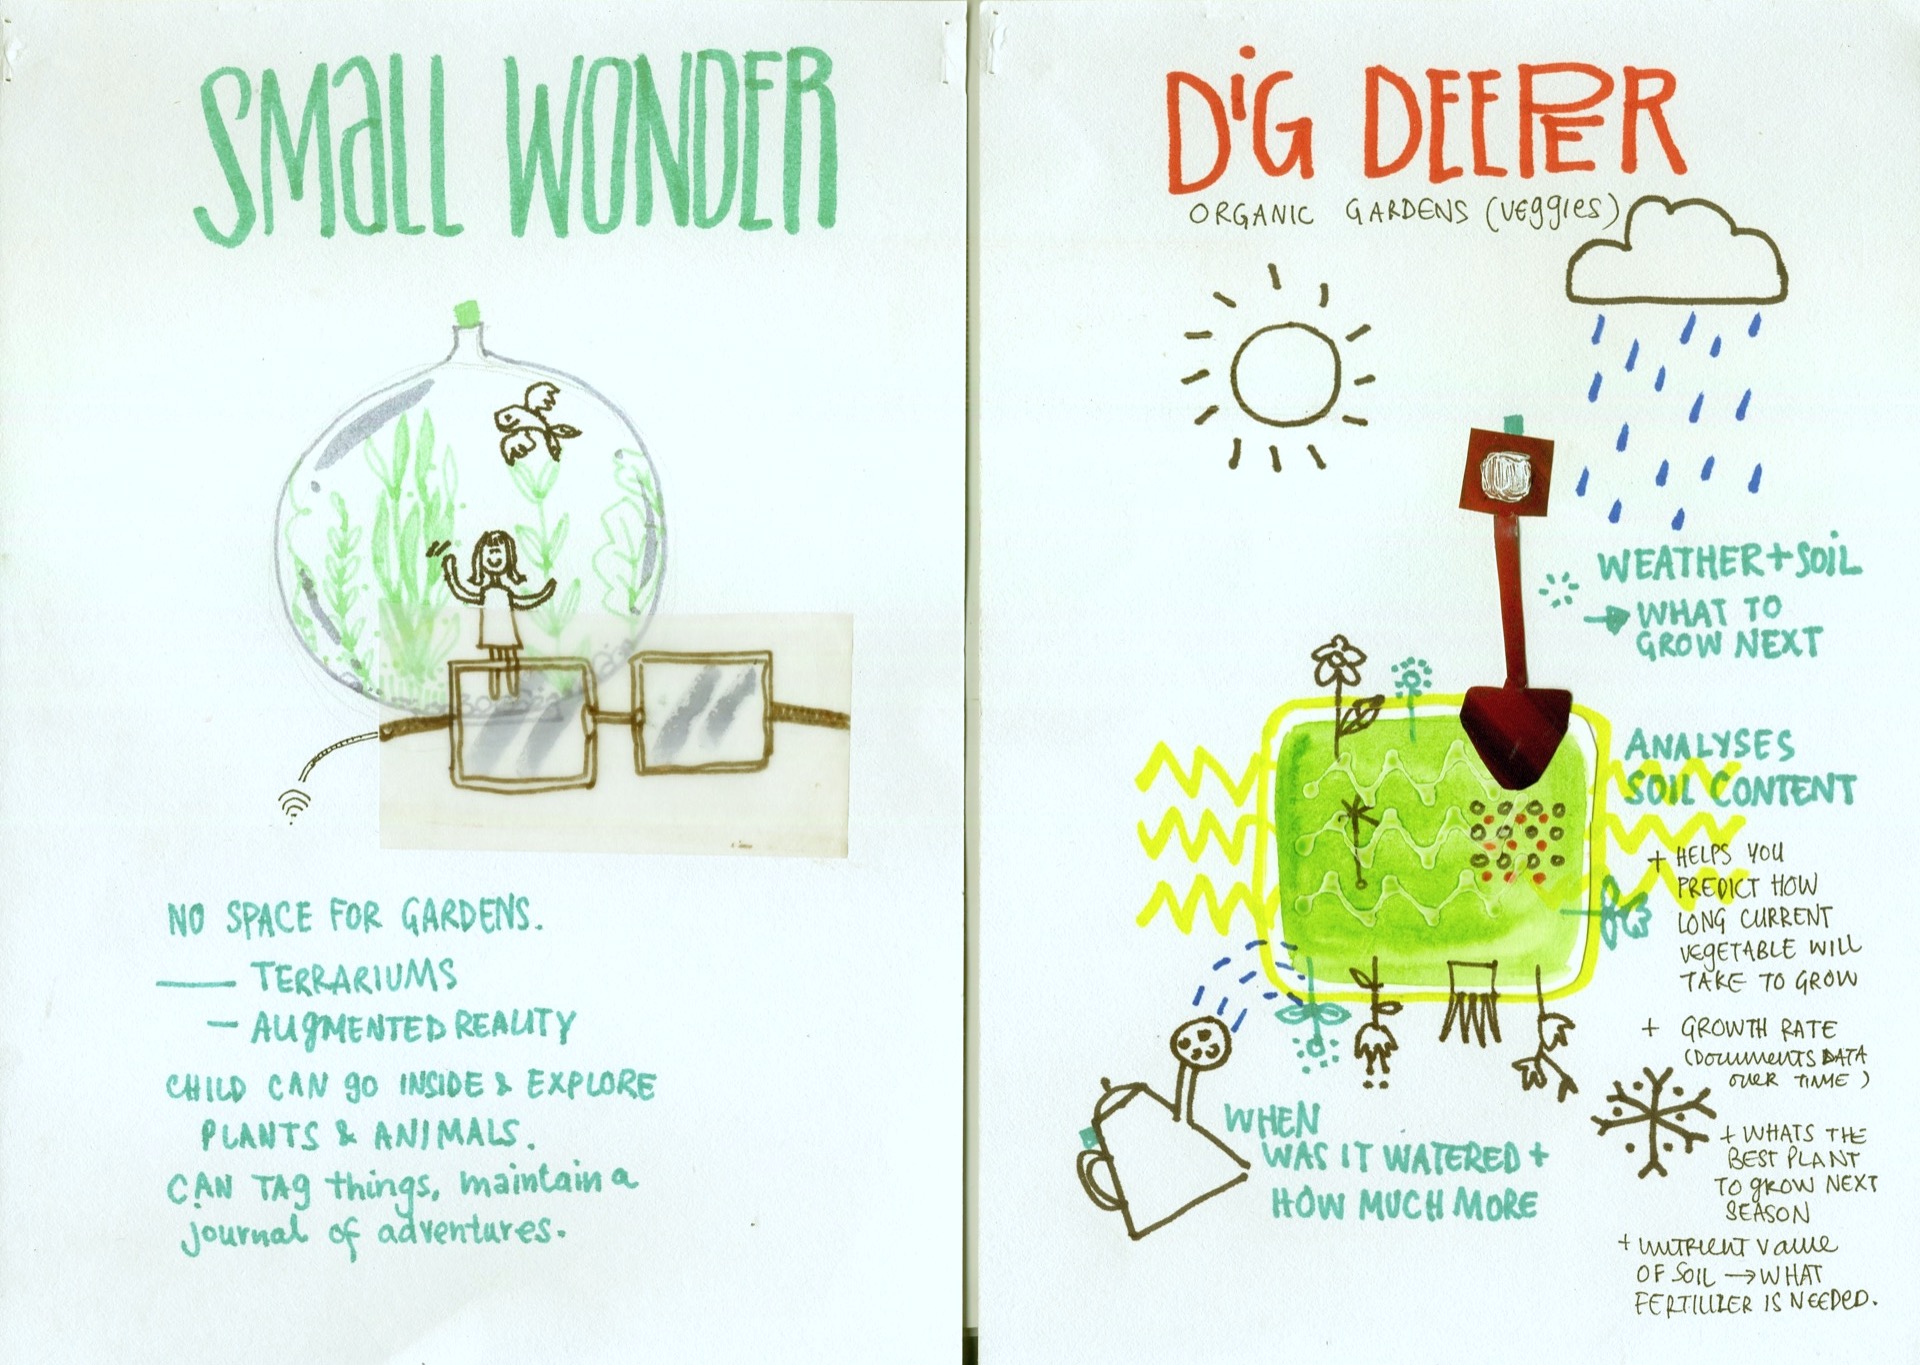 SMaLL WONDER
NO SPACE FOR GARDENS.
— TERRARIUMS
— AUGMENTED REALITY
CHILD CAN go INSIDE & EXPLORE
PLANTS & ANIMALS.
CAN TAg things, maintain a
journal of adventures.
DiG DEEPER
ORGANIC GARDENS (veggies)
WEATHER + SOiL
→ WHAT TO
GROW NEXT
ANALYSES
SOIL CONTENT
+ HELPS YOU
PREDICT HOW
LONG CURRENT
VEGETABLE WILL
TAKE TO GROW
+ GROWTH RATE
(DOCUMENTS DATA
OVER TIME)
+ WHATS THE
BEST PLANT
TO GROW NEXT
SEASON
+ NUTRIENT Value
OF SOIL → WHAT
FERTILIZER IS NEEDED.
WHEN
WAS IT WATERED +
HOW MUCH MORE